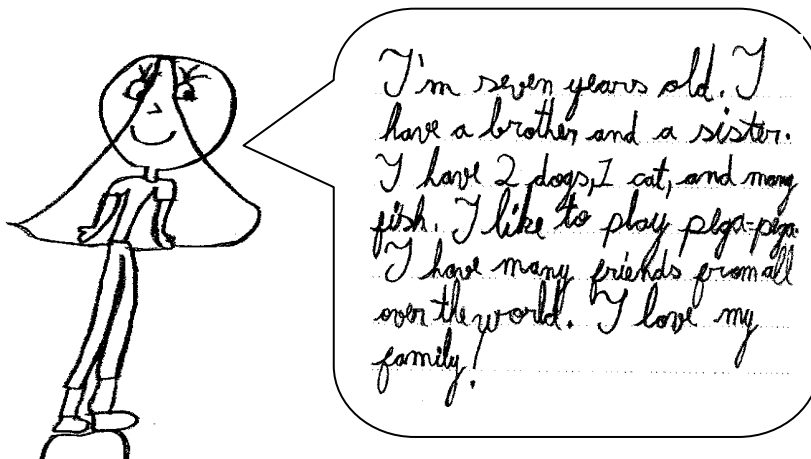 I'm seven years old. I
have a brother, and a sister.
I have 2 dogs, 1 cat, and many
fish. I like to play pega-pega.
I have many friends from all
over the world. I love my
family!